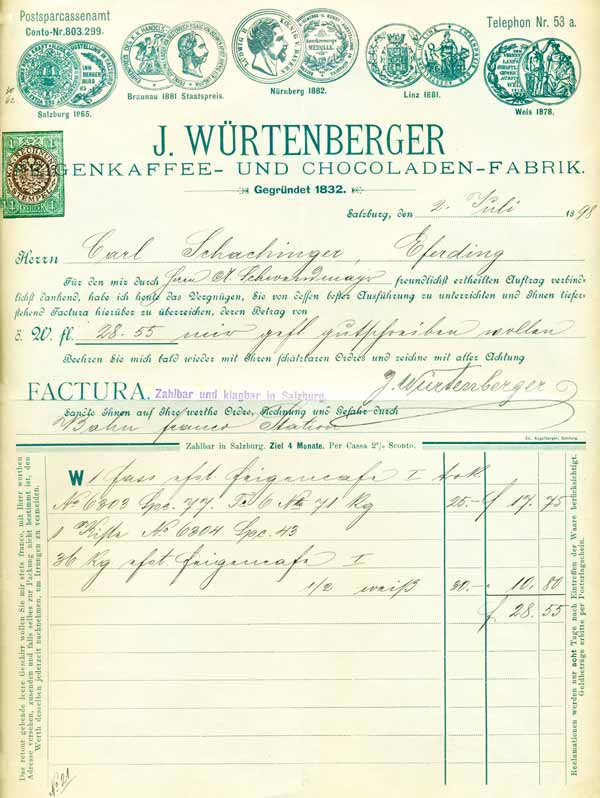 Postsparcassenamt
Conto-Nr. 803.299.
Telephon Nr. 53 a.
Salzburg 1865.
Braunau 1881 Staatspreis.
Nürnberg 1882.
Linz 1881.
Weis 1878.
J. WÜRTENBERGER
GENKAFFEE- UND CHOCOLADEN-FABRIK.
Gegründet 1832.
Salzburg, den 2. Juli 1898
Herrn Carl Schachinger, Eferding
Für den mir durch Herrn A. Schwandmayr freundlichst ertheilten Auftrag verbind-
lichst dankend, habe ich heute das Vergnügen, Sie von dessen bester Ausführung zu unterrichten und Ihnen tiefer-
stehend Factura hierüber zu überreichen, deren Betrag von
ö. W. fl. 28-55 mir gefl. gutschreiben wollen
Beehren Sie mich bald wieder mit Ihren schätzbaren Ordres und zeichne mit aller Achtung
J. Würtenberger
FACTURA. Zahlbar und klagbar in Salzburg.
Sandte Ihnen auf Ihre werthe Ordre, Rechnung und Gefahr durch
Bahn franco Station
Zahlbar in Salzburg. Ziel 4 Monate. Per Cassa 2% Sconto.
W 1 Fass efst. Feigencafe I
No 6303 Spc. 77. T. 6 No 71 Kg 25.- f 17. 75
1 Kiste No 6304 Spc. 43
36 Kg efst. Feigencafe I
1/2 weiß 30.- 10. 80
f 28. 55
Das retour gehende leere Geschirr wollen Sie mir stets franco, mit Ihrer werthen
Adresse versehen, zusenden und falls selbes zur Packung nicht bestimmt ist, den
Werth desselben jederzeit nachnehmen, um Irrungen zu vermeiden.
Reclamationen werden nur acht Tage nach Eintreffen der Waare berücksichtigt.
Geldbeträge erbitte per Posterlagschein.
No 21